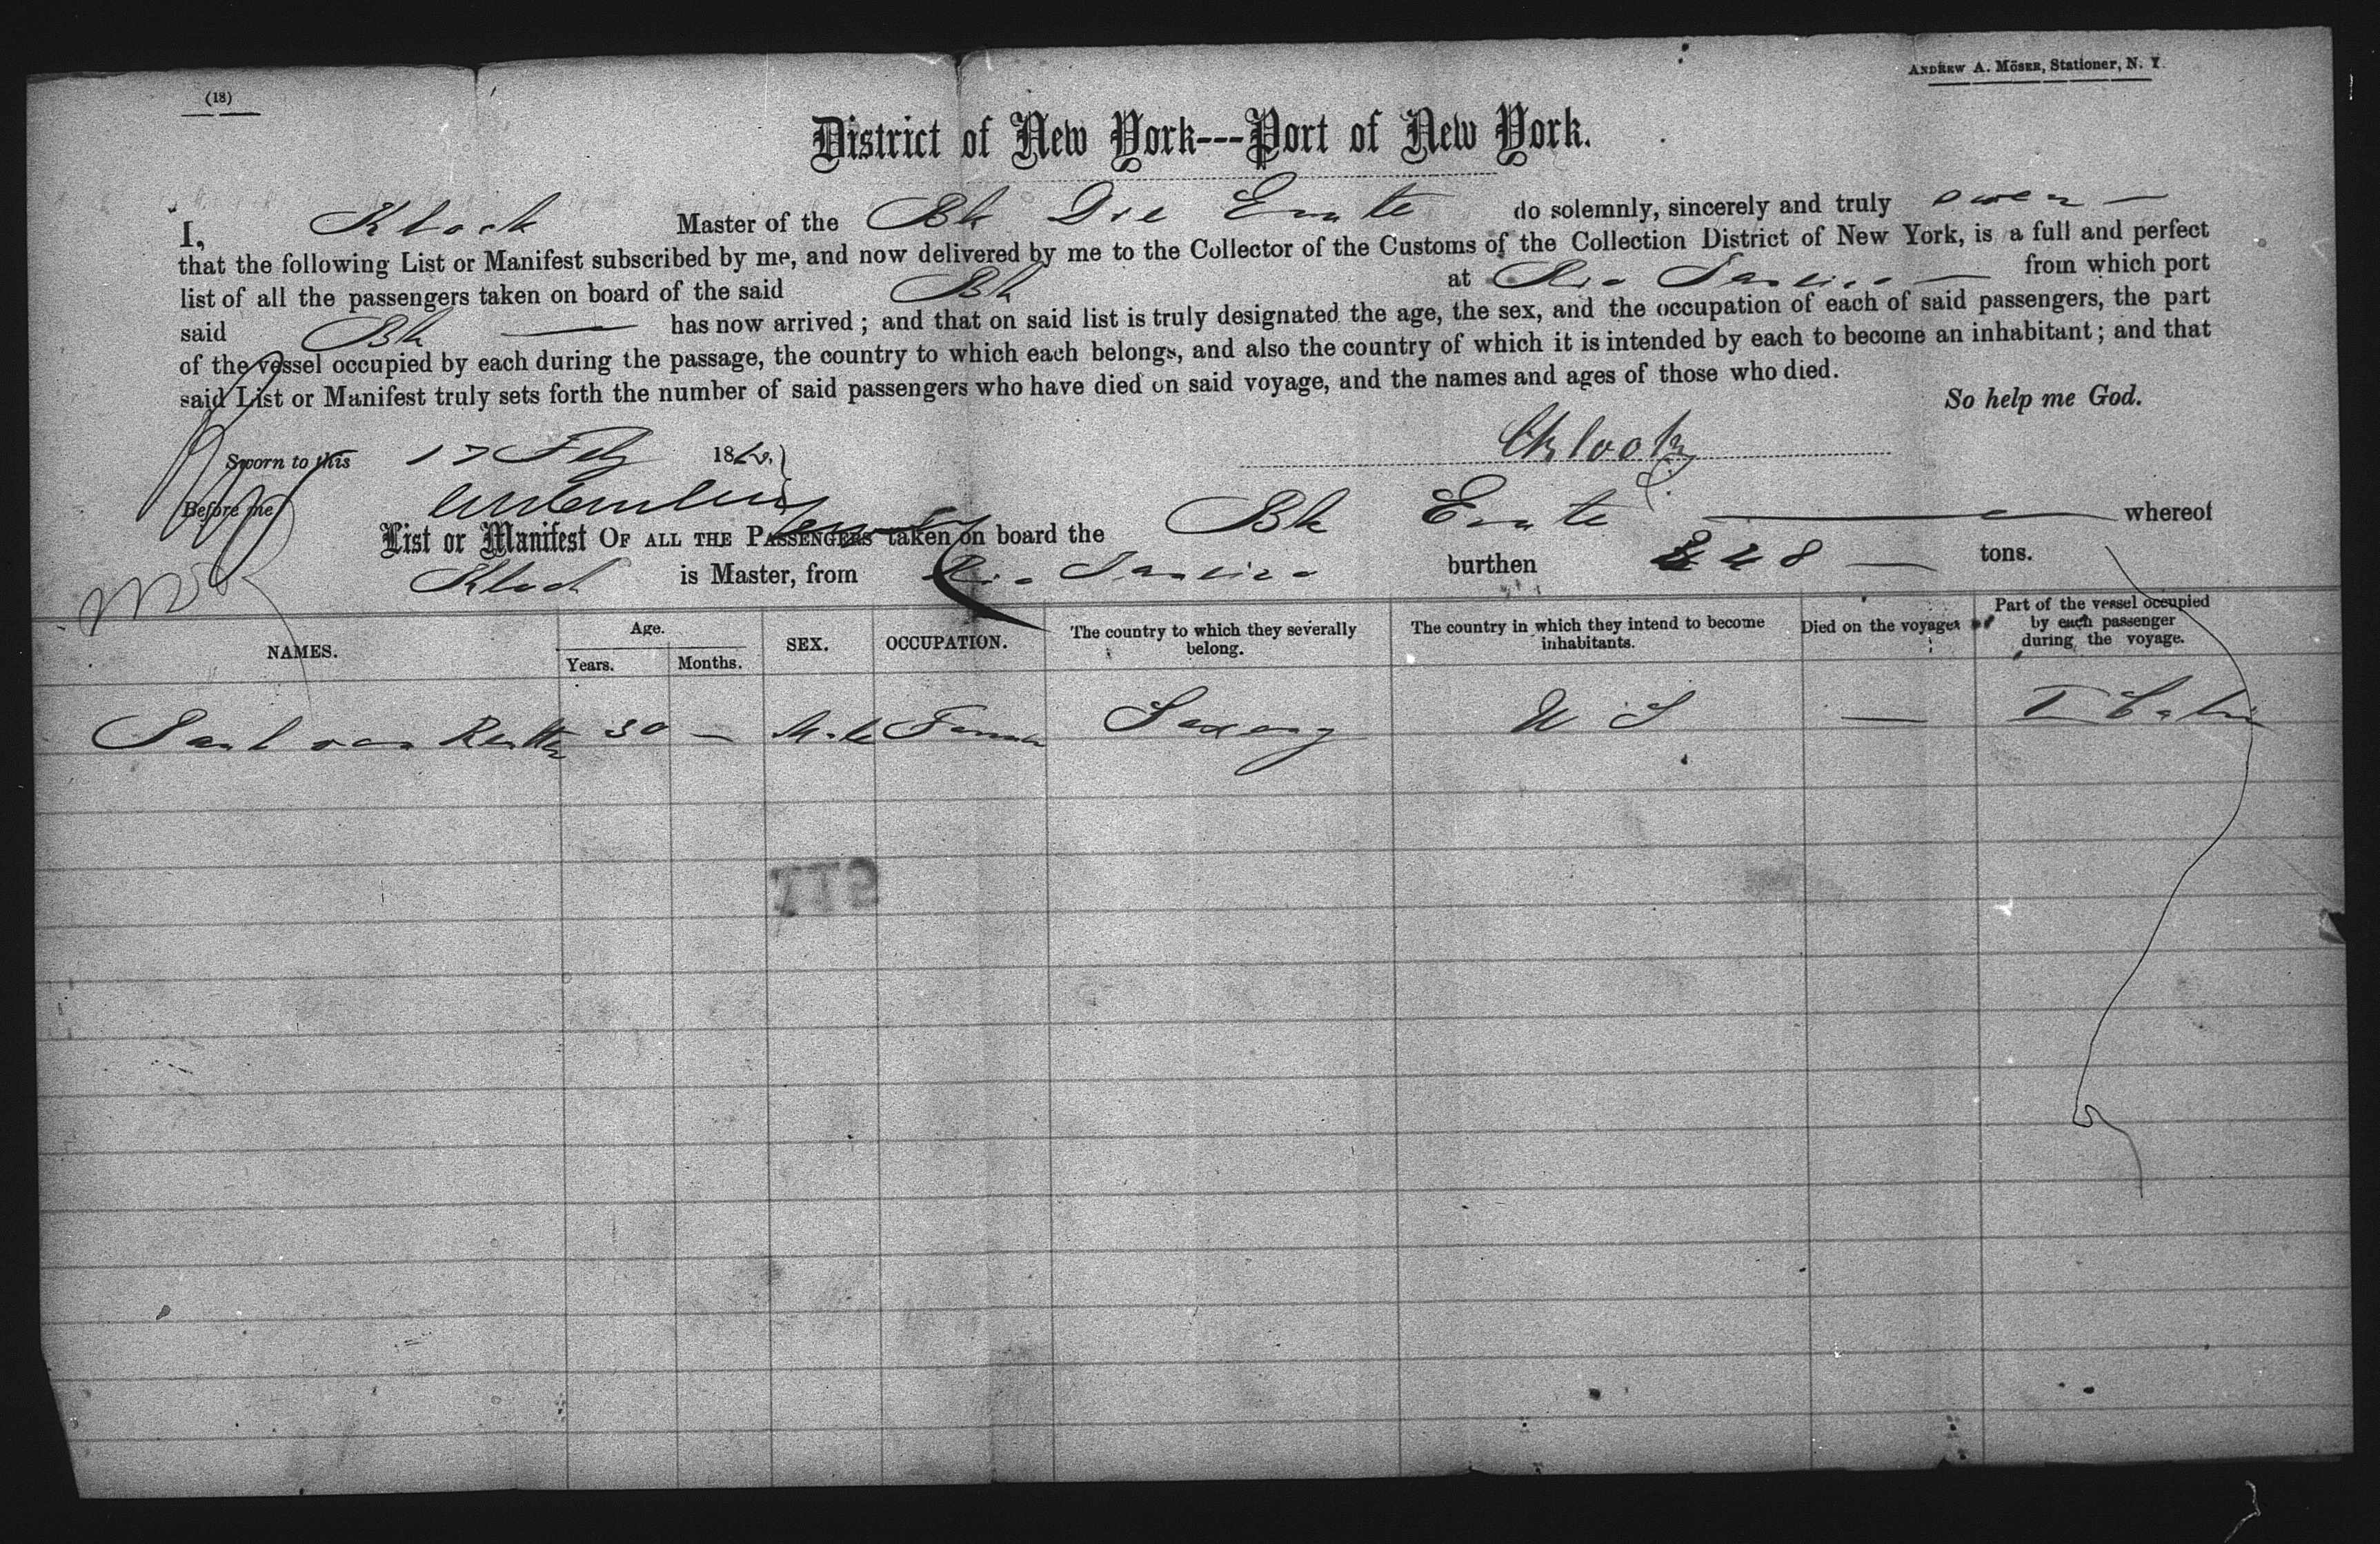 (18)
ANDREW A. MÖSER, Stationer, N. Y.
District of New York---Port of New York.
I, Klock Master of the Bk Die Ernte do solemnly, sincerely and truly swear
that the following List or Manifest subscribed by me, and now delivered by me to the Collector of the Customs of the Collection District of New York, is a full and perfect
list of all the passengers taken on board of the said Bk at Rio Janeiro from which port
said Bk has now arrived; and that on said list is truly designated the age, the sex, and the occupation of each of said passengers, the part
of the vessel occupied by each during the passage, the country to which each belongs, and also the country of which it is intended by each to become an inhabitant; and that
said List or Manifest truly sets forth the number of said passengers who have died on said voyage, and the names and ages of those who died.
So help me God.
Sworn to this 17 Feby 186
Before me
List or Manifest OF ALL THE PASSENGERS taken on board the Bk Ernte whereof
is Master, from Rio Janeiro burthen tons.
NAMES. Age. Years. Months. SEX. OCCUPATION. The country to which they severally belong. The country in which they intend to become inhabitants. Died on the voyage. Part of the vessel occupied by each passenger during the voyage.
30 — Male Farmer Saxony U S — Cabin